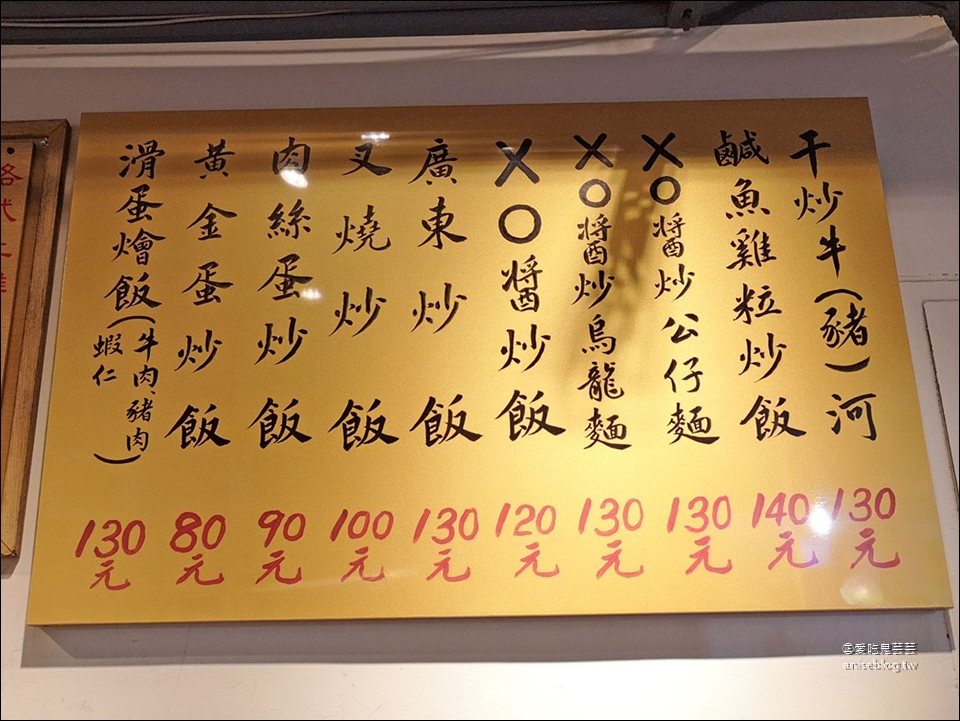 干炒牛(豬)河
130元
鹹魚雞粒炒飯
140元
XO醬炒公仔麵
130元
XO醬炒烏龍麵
130元
XO醬炒飯
120元
廣東炒飯
130元
叉燒炒飯
100元
肉絲蛋炒飯
90元
黃金蛋炒飯
80元
滑蛋燴飯(牛肉、豬肉
蝦仁)
130元
@愛吃鬼芸芸
aniseblog.tw